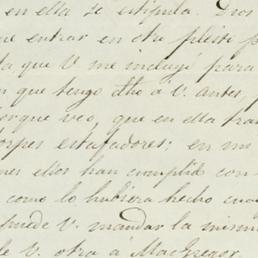 en ella se estipula. Dios
ue entrar en otro pleito p
la que V me incluyó para
n que tengo dho á V. antes,
orque veo, que en ella tra
torpes estafadores; en mi
nes ellos han cumplido con
como lo hubiera hecho cua
puede V. mandar la misma
de V. otra á MacGregor